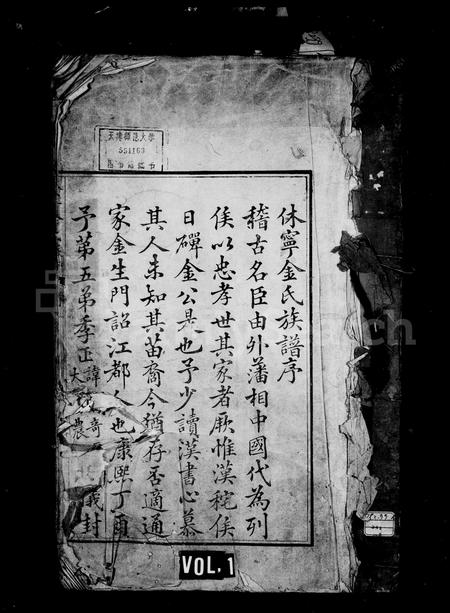 休寧金氏族譜序
稽古名臣由外藩相中國代為列
侯以忠孝世其家者厥惟漢秺侯
日磾金公是也予少讀漢書心慕
其人未知其苗裔今猶存否適通
家金生門詔江都人也康熙丁酉
予第五弟季正諱 大 農奇 義封
天津師范大学
551163
图书馆藏书
VOL.1